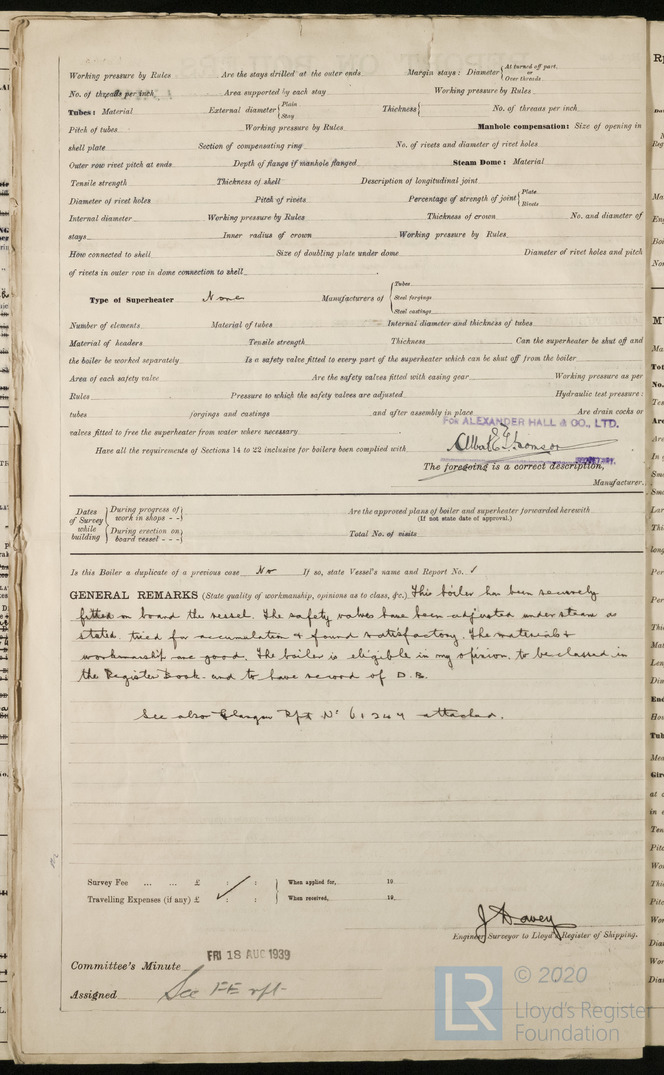 Working pressure by Rules Are the stays drilled at the outer ends Margin stays: Diameter { At turned off part, or Over threads
No. of threads per inch Area supported by each stay Working pressure by Rules
Tubes: Material External diameter { Plain Stay Thickness { No. of threads per inch
Pitch of tubes Working pressure by Rules Manhole compensation: Size of opening in
shell plate Section of compensating ring No. of rivets and diameter of rivet holes
Outer row rivet pitch at ends Depth of flange if manhole flanged Steam Dome: Material
Tensile strength Thickness of shell Description of longitudinal joint
Diameter of rivet holes Pitch of rivets Percentage of strength of joint { Plate Rivets
Internal diameter Working pressure by Rules Thickness of crown No. and diameter of
stays Inner radius of crown Working pressure by Rules
How connected to shell Size of doubling plate under dome Diameter of rivet holes and pitch
of rivets in outer row in dome connection to shell
Type of Superheater None Manufacturers of { Tubes Steel forgings Steel castings
Number of elements Material of tubes Internal diameter and thickness of tubes
Material of headers Tensile strength Thickness Can the superheater be shut off and
the boiler be worked separately Is a safety valve fitted to every part of the superheater which can be shut off from the boiler
Area of each safety valve Are the safety valves fitted with easing gear Working pressure as per
Rules Pressure to which the safety valves are adjusted Hydraulic test pressure:
tubes forgings and castings and after assembly in place Are drain cocks or
valves fitted to free the superheater from water where necessary
FOR ALEXANDER HALL & CO., LTD.
Have all the requirements of Sections 14 to 22 inclusive for boilers been complied with
SECRETARY.
The foregoing is a correct description,
Manufacturer.
Dates of Survey while building { During progress of work in shops - - } { During erection on board vessel - - - }
Are the approved plans of boiler and superheater forwarded herewith
(If not state date of approval.)
Total No. of visits
Is this Boiler a duplicate of a previous case No If so, state Vessel's name and Report No. ✓
GENERAL REMARKS (State quality of workmanship, opinions as to class, &c.) This boiler has been securely
fitted on board the vessel. The safety valves have been adjusted under steam as
stated tried for accumulation & found satisfactory. The materials &
workmanship are good. The boiler is eligible in my opinion to be classed in
the Register Book and to have record of D.B.
See also Glasgow Rpt No 61244 attached.
Survey Fee ... ... £ : : When applied for, 19
Travelling Expenses (if any) £ : : When received, 19
J Davey
Engineer Surveyor to Lloyd's Register of Shipping.
FRI 18 AUG 1939
Committee's Minute
Assigned See FE rpt
LR © 2020
Lloyd's Register
Foundation